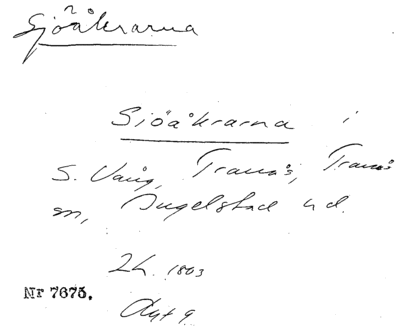 Sjöåkrarna
Sjöåkrarna i
S. Vång, Tranås, Tranås
sn, Ingelstad hd.
Lh. 1803
Nr 7675.
Akt 9